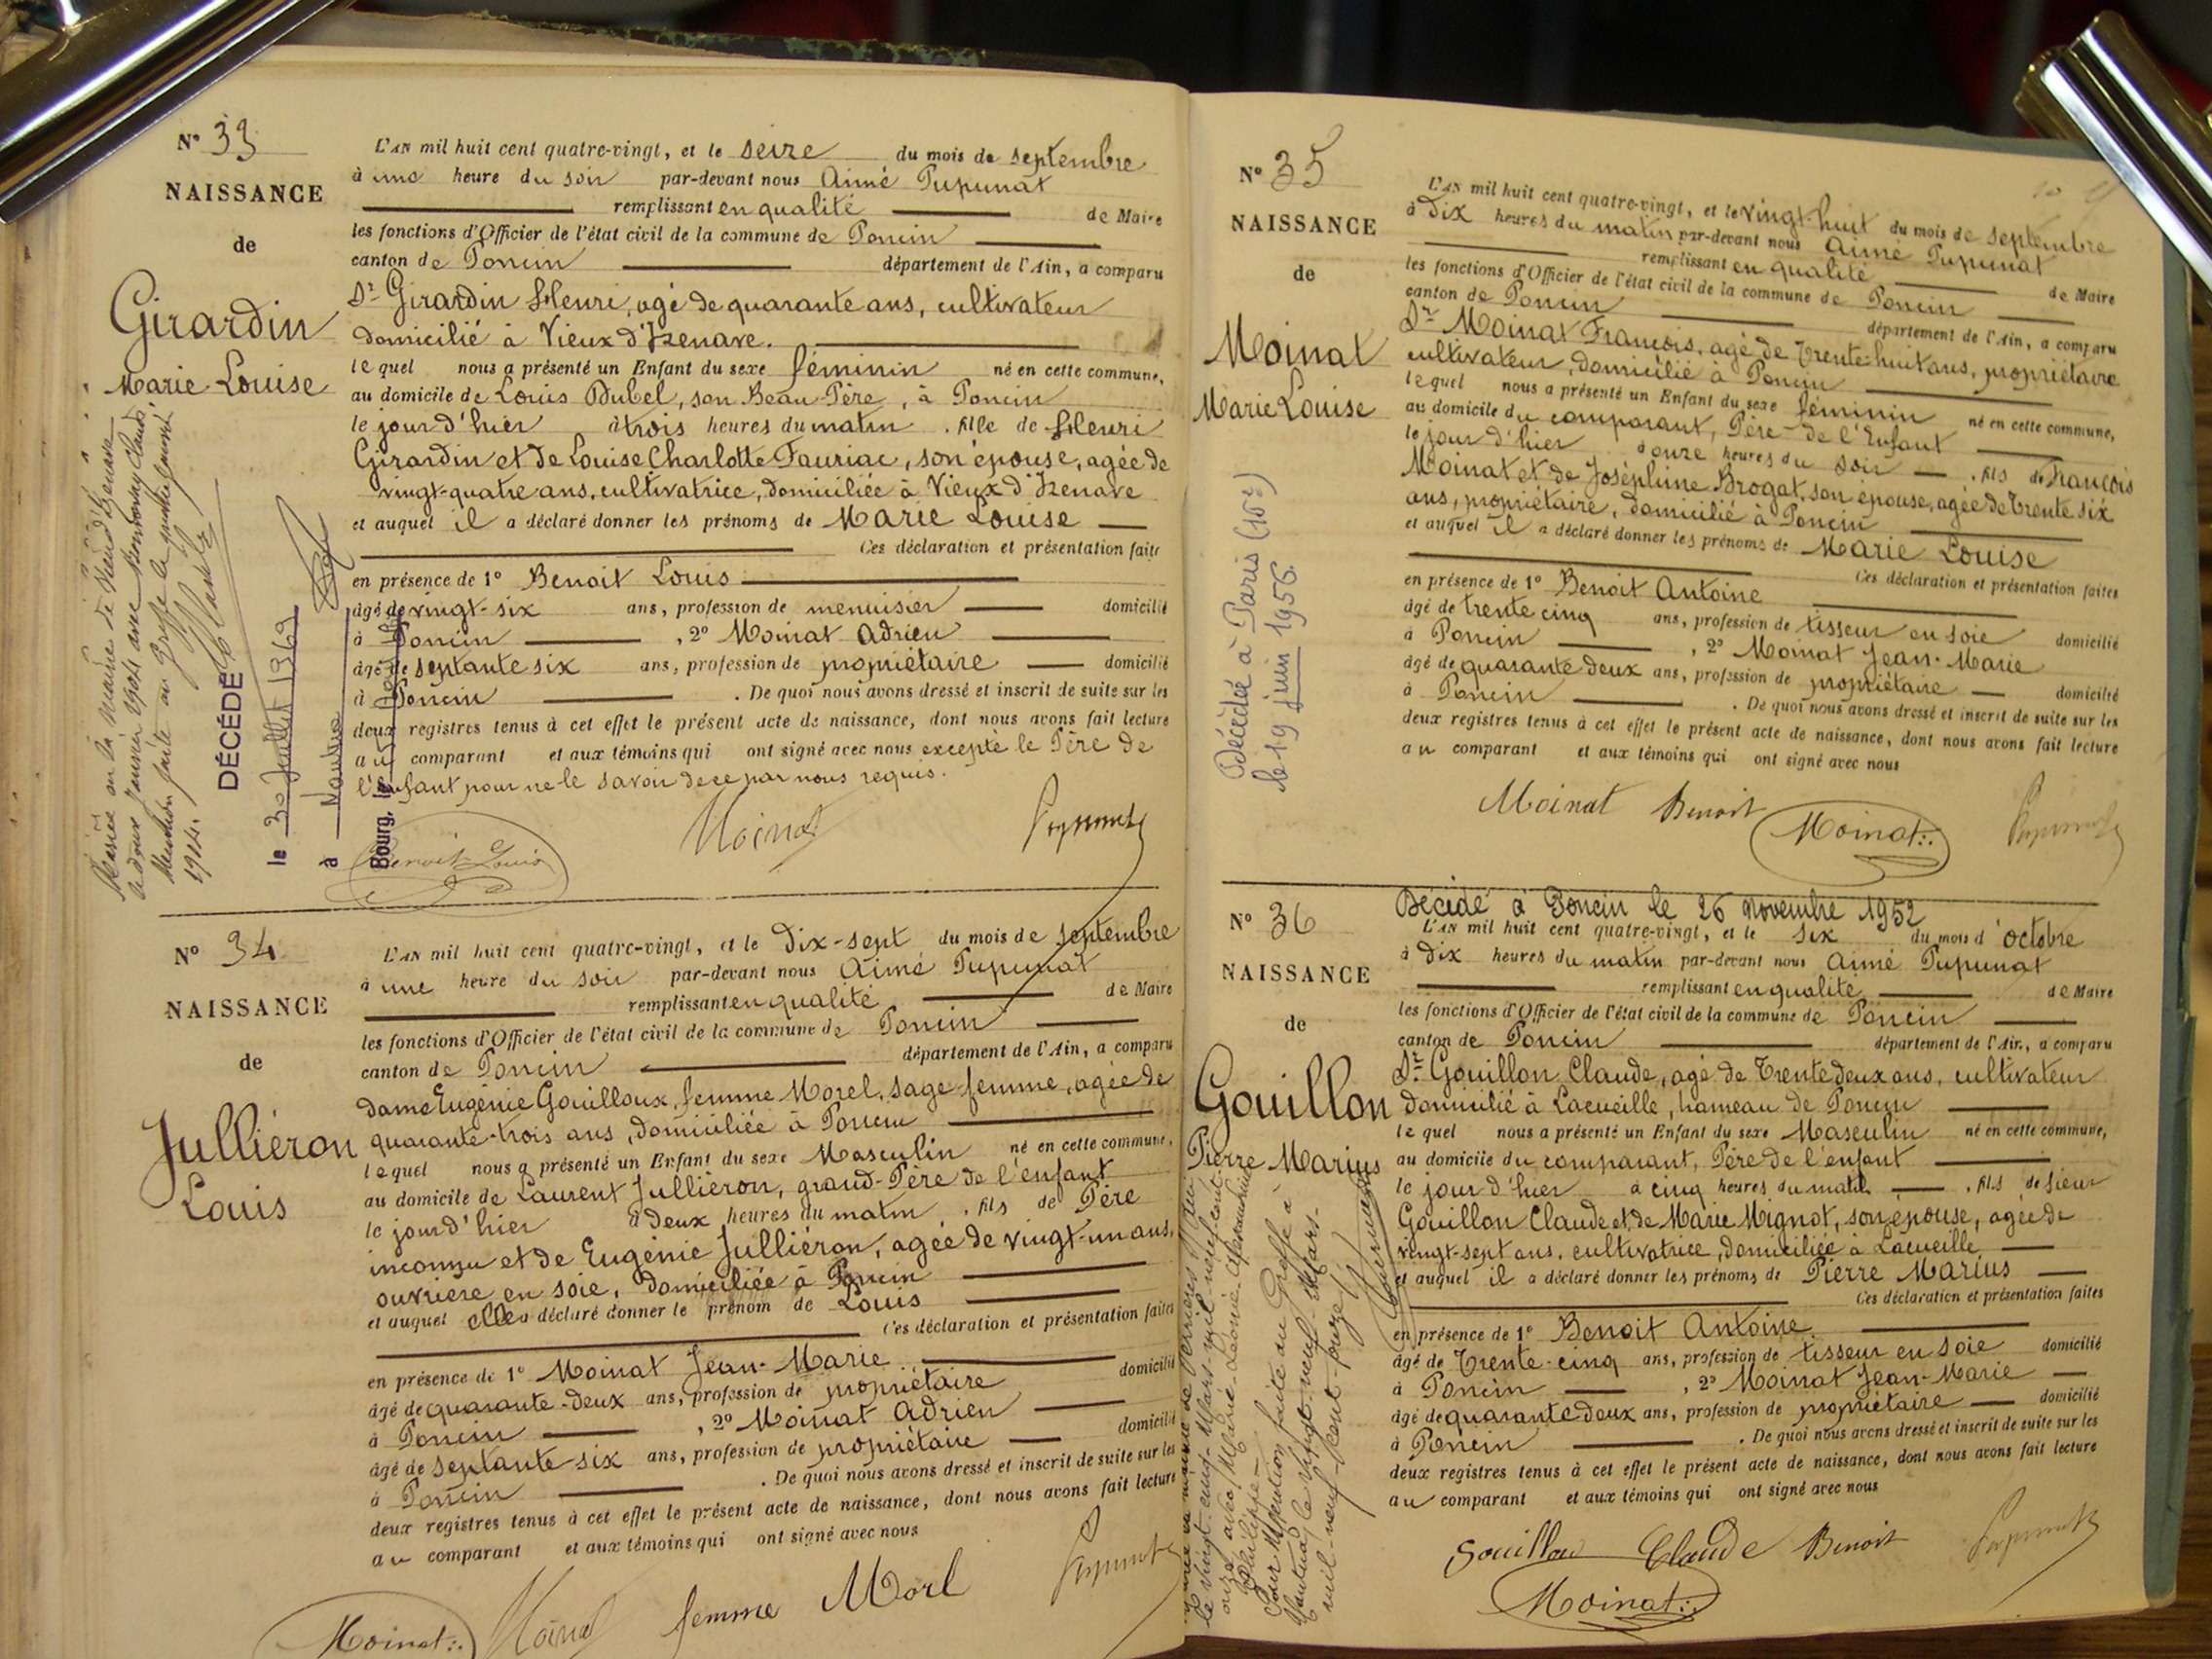 N° 33
NAISSANCE
de
Girardin
Marie Louise
L'AN mil huit cent quatre-vingt, et le seize du mois de septembre
à une heure du soir par-devant nous Aimé Pupunat
remplissant en qualité de Maire
les fonctions d'Officier de l'état civil de la commune de Poncin
canton de Poncin département de l'Ain, a comparu
Sr Girardin Henri, agé de quarante ans, cultivateur
domicilié à Vieux d'Izenave.
lequel nous a présenté un Enfant du sexe féminin né en cette commune,
au domicile de Louis Dubel, son Beau-Père, à Poncin
le jour d'hier à trois heures du matin, fille de Henri
Girardin et de Louise Charlotte Fauriac, son épouse, agée de
vingt-quatre ans, cultivatrice, domiciliée à Vieux d'Izenave
et auquel il a déclaré donner les prénoms de Marie Louise
Ces déclaration et présentation faite
en présence de 1° Benoit Louis
âgé de vingt-six ans, profession de menuisier domicilié
à Poncin, 2° Moinat Adrien
âgé de septante six ans, profession de propriétaire domicilié
à Poncin. De quoi nous avons dressé et inscrit de suite sur les
deux registres tenus à cet effet le présent acte de naissance, dont nous avons fait lecture
au comparant et aux témoins qui ont signé avec nous excepté le Père de
l'enfant pour ne le savoir de ce par nous requis.
Benoit Louis Moinat Pupunat
Mention faite au Greffe le
1914.
DÉCÉDÉ
le 30 Juillet 1969
à
Bourg, le
N° 34
NAISSANCE
de
Julliéron
Louis
L'AN mil huit cent quatre-vingt, et le dix-sept du mois de septembre
à une heure du soir par-devant nous Aimé Pupunat
remplissant en qualité de Maire
les fonctions d'Officier de l'état civil de la commune de Poncin
canton de Poncin département de l'Ain, a comparu
dame Eugénie Gouilloux, femme Morel, sage-femme, agée de
quarante-trois ans, domiciliée à Poncin
lequel nous a présenté un Enfant du sexe Masculin né en cette commune,
au domicile de Laurent Julliéron, grand-Père de l'enfant
le jour d'hier à deux heures du matin, fils de Père
inconnu et de Eugénie Julliéron, agée de vingt-un ans,
ouvrière en soie, domiciliée à Poncin
et auquel elle a déclaré donner le prénom de Louis
Ces déclaration et présentation faites
en présence de 1° Moinat Jean-Marie
âgé de quarante-deux ans, profession de propriétaire domicilié
à Poncin, 2° Moinat Adrien
âgé de septante-six ans, profession de propriétaire domicilié
à Poncin. De quoi nous avons dressé et inscrit de suite sur les
deux registres tenus à cet effet le présent acte de naissance, dont nous avons fait lecture
au comparant et aux témoins qui ont signé avec nous
Moinat Moinat femme Morl Pupunat
N° 35
NAISSANCE
de
Moinat
Marie Louise
L'AN mil huit cent quatre-vingt, et le vingt-huit du mois de septembre
à dix heures du matin par-devant nous Aimé Pupunat
remplissant en qualité de Maire
les fonctions d'Officier de l'état civil de la commune de Poncin
canton de Poncin département de l'Ain, a comparu
Sr Moinat François, agé de trente-huit ans, propriétaire
cultivateur, domicilié à Poncin
lequel nous a présenté un Enfant du sexe féminin né en cette commune,
au domicile du comparant, Père de l'Enfant
le jour d'hier à onze heures du soir, fils de François
Moinat et de Joséphine Brogat, son épouse, agée de trente six
ans, propriétaire, domicilié à Poncin
et auquel il a déclaré donner les prénoms de Marie Louise
Ces déclaration et présentation faites
en présence de 1° Benoit Antoine
âgé de trente cinq ans, profession de tisseur en soie domicilié
à Poncin, 2° Moinat Jean-Marie
âgé de quarante deux ans, profession de propriétaire domicilié
à Poncin. De quoi nous avons dressé et inscrit de suite sur les
deux registres tenus à cet effet le présent acte de naissance, dont nous avons fait lecture
au comparant et aux témoins qui ont signé avec nous
Moinat Benoit Moinat Pupunat
Décédée à Paris (10e)
le 19 juin 1956.
N° 36
NAISSANCE
de
Gouillon
Pierre Marius
Décédé à Poncin le 26 Novembre 1952
L'AN mil huit cent quatre-vingt, et le six du mois d'octobre
à dix heures du matin par-devant nous Aimé Pupunat
remplissant en qualité de Maire
les fonctions d'Officier de l'état civil de la commune de Poncin
canton de Poncin département de l'Ain, a comparu
Sr Gouillon Claude, agé de trente deux ans, cultivateur
domicilié à Lacueille, hameau de Poncin
lequel nous a présenté un Enfant du sexe Masculin né en cette commune,
au domicile du comparant, Père de l'enfant
le jour d'hier à cinq heures du matin, fils de sieur
Gouillon Claude et de Marie Mignot, son épouse, agée de
vingt-sept ans, cultivatrice, domiciliée à Lacueille
et auquel il a déclaré donner les prénoms de Pierre Marius
Ces déclaration et présentation faites
en présence de 1° Benoit Antoine
âgé de trente-cinq ans, profession de tisseur en soie domicilié
à Poncin, 2° Moinat Jean-Marie
âgé de quarante deux ans, profession de propriétaire domicilié
à Poncin. De quoi nous avons dressé et inscrit de suite sur les
deux registres tenus à cet effet le présent acte de naissance, dont nous avons fait lecture
au comparant et aux témoins qui ont signé avec nous
Gouillon Claude Benoit Pupunat
Moinat
le vingt-cinq Mars mil-neuf-cent
onze avec Marie-Léonie
Philippe
Pour Mention faite au Greffe à
Nantua, le vingt-neuf Mars
mil-neuf-cent-onze